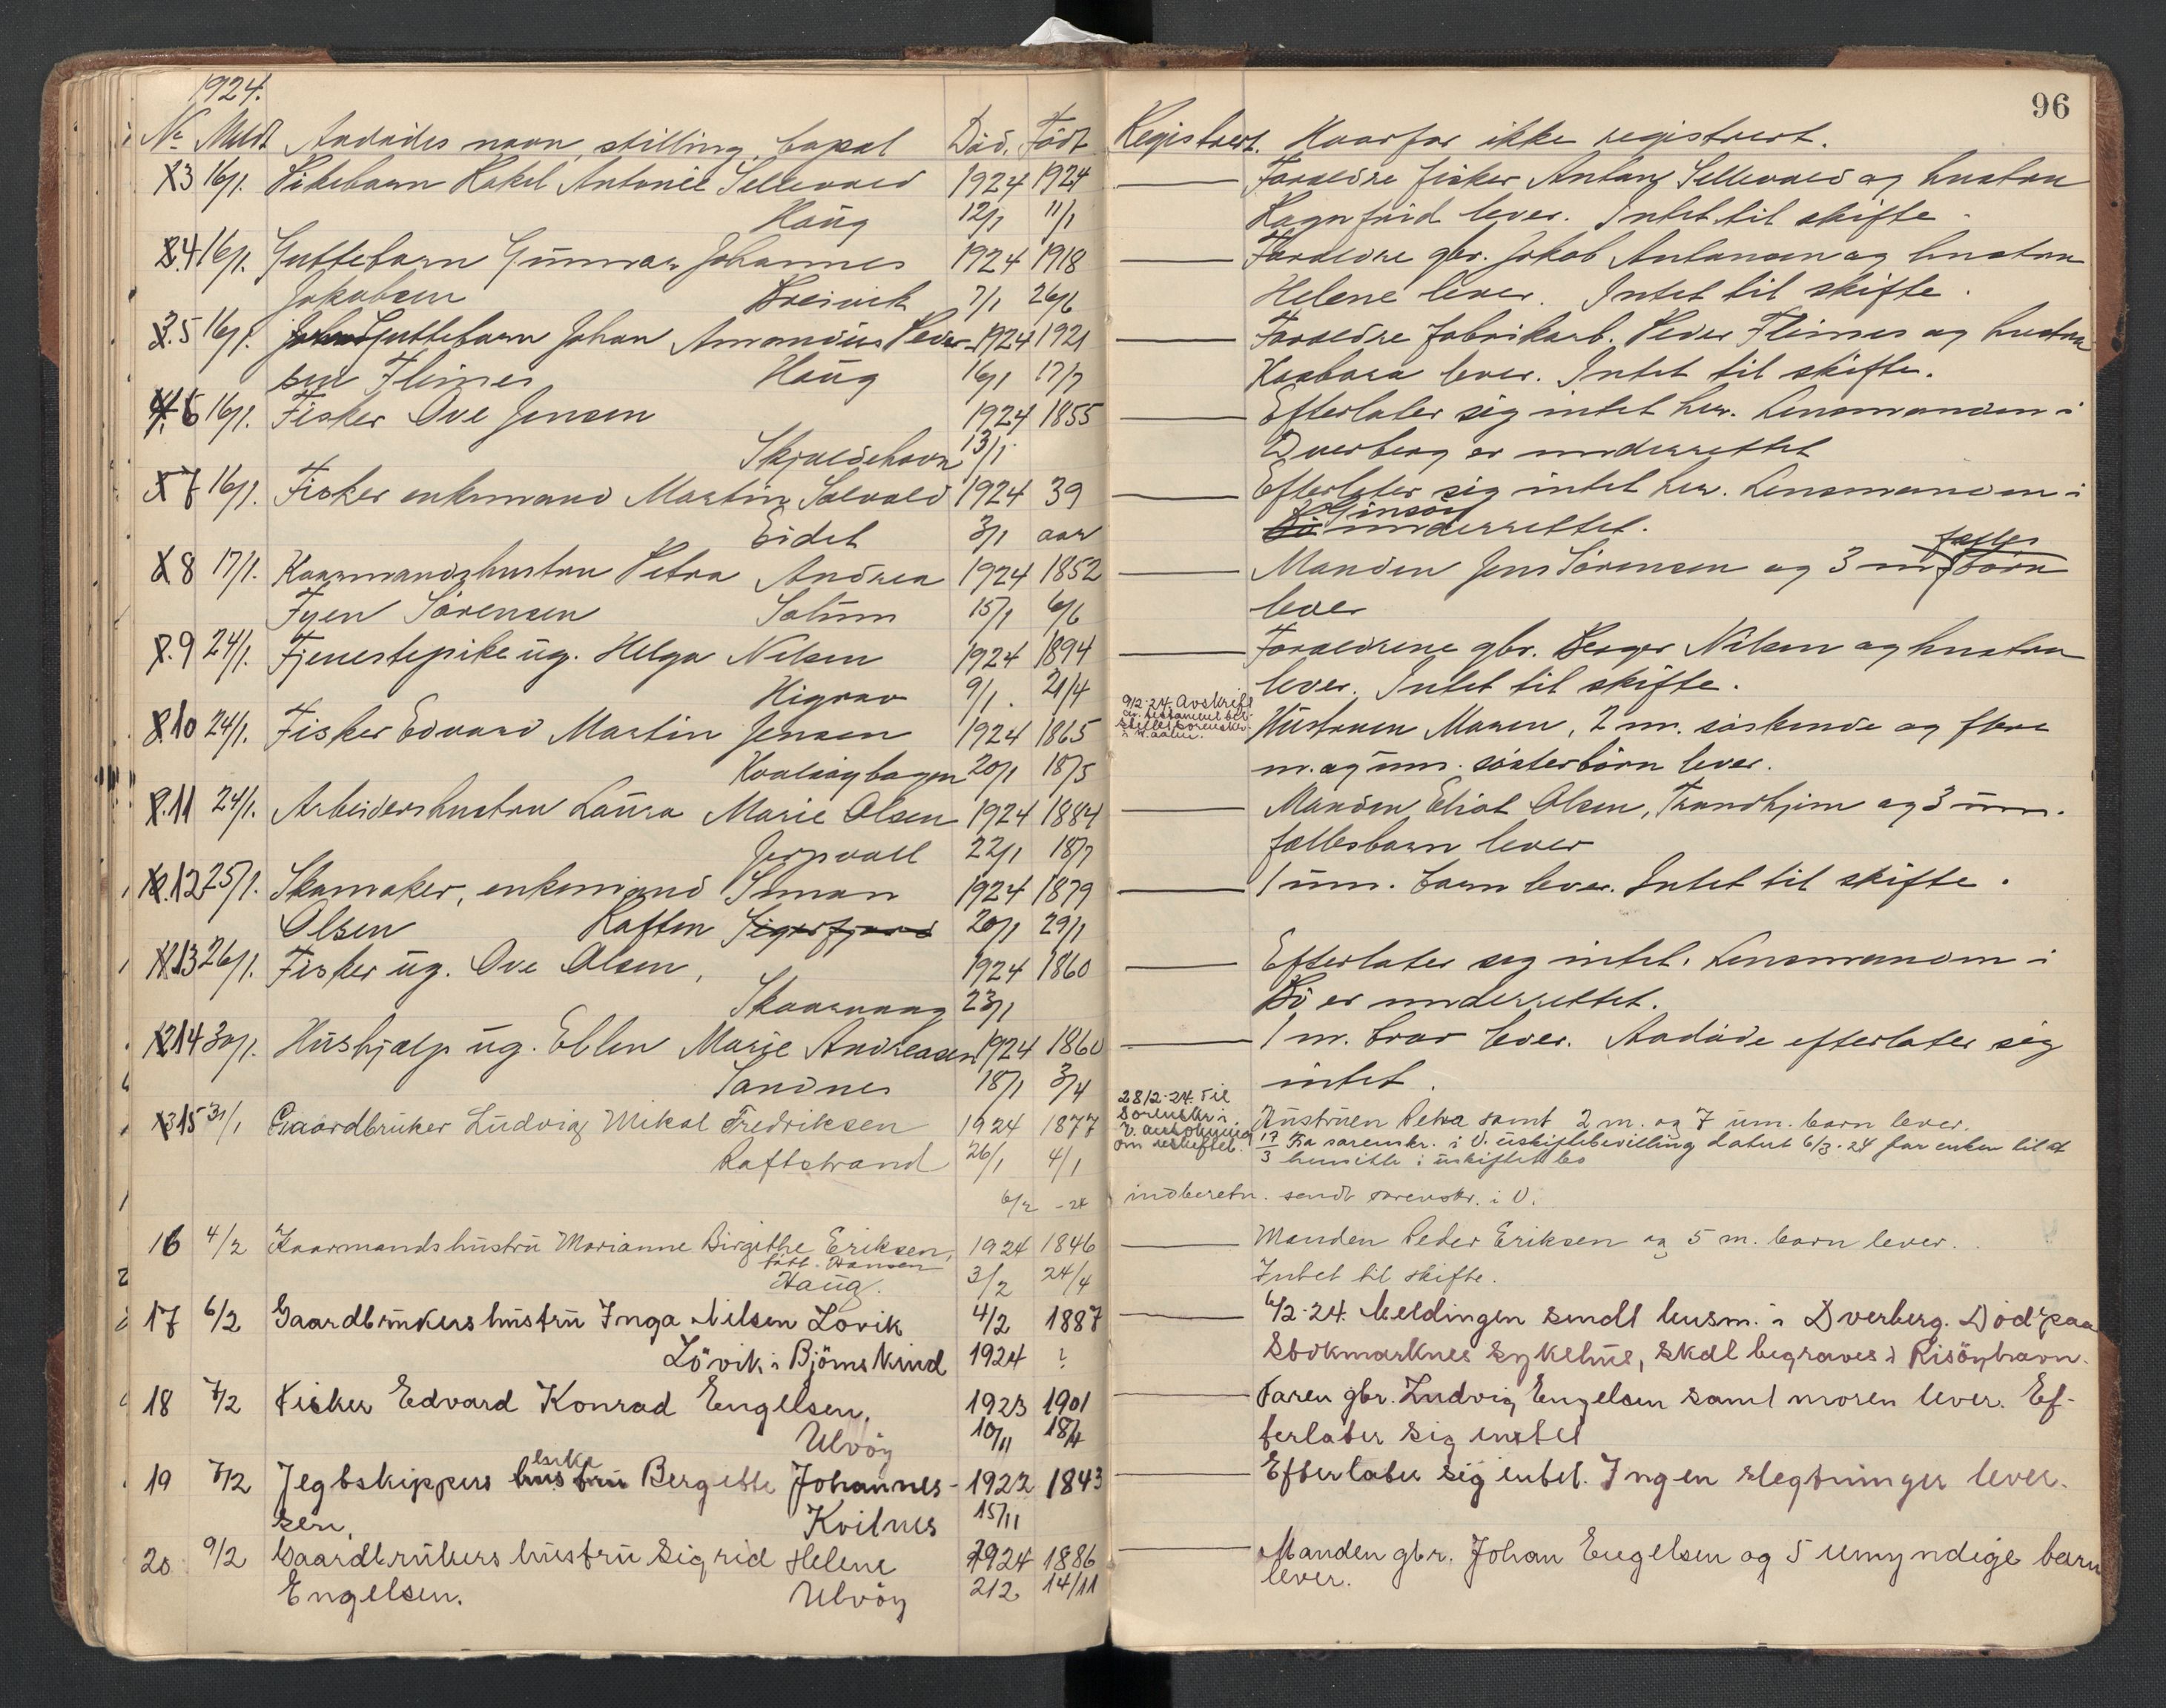 1924.
96
No Meldt Avdødes navn, stilling, bopæl Død. Født Registrert. Hvorfor ikke registrert.
3 16/1. Pikebarn Rakel Antonie Sellevold 1924 1924 Forældre fisker Anton Sellevold og hustru
Haug 12/1 11/1 Ragnfrid lever. Intet til skifte.
4 16/1. Guttebarn Gunnar Johannes 1924 1918 Forældre gbr. Jakob Antonsen og hustru
Jakobsen Breivik 7/1 26/6 Helene lever. Intet til skifte.
5 16/1. Guttebarn Johan Amandus Peder- 1924 1921 Forældre fabrikarb. Peder Fleines og hustru
sen Fleines Haug 16/1 17/7 Hasbara lever. Intet til skifte.
6 16/1. Fisker Ove Jensen 1924 1855 Efterlater sig intet her. Lensmanden i
Skjoldehavn 13/1 Dverberg er underrettet
7 16/1. Fisker enkemand Martin Solvold 1924 39 Efterlater sig intet her. Lensmanden i
Eidet 3/1 aar Bö Ginsöy underrettet.
8 17/1. Kaarmandshustru Petra Andrea 1924 1852 Manden Jens Sørensen og 3 m. fælles börn
Fyen Sørensen Solum 15/1 6/6 lever
9 24/1. Tjenestepike ug. Helga Nilsen 1924 1894 Forældrene gbr. Berger Nilsen og hustru
Higrav 9/1. 21/4 lever. Intet til skifte.
9/2-24. Avskrift
av testament
10 24/1. Fisker Edvard Martin Jensen 1924 1865 Hustruen Maren, 2 m. söskende og flere
Kvalsøybogen 20/1 18/5 m. og um. søsterbörn lever.
11 24/1. Arbeidershustru Laura Marie Olsen 1924 1884 Manden Eliot Olsen, Trondhjem og 3 um.
Jernvoll 22/1 18/7 fællesbarn lever
12 25/1. Skomaker, enkemand Sman 1924 1879 1 um. barn lever. Intet til skifte.
Olsen Raften Sigerfjord 20/1 29/1
13 26/1. Fisker ug. Ove Olsen, 1924 1860 Efterlater seg intet. Lensmanden i
Skaarvaag 23/1 Bö er underrettet.
14 30/1. Hushjælp ug. Ellen Marie Andreasen 1924 1860 1 m. bror lever. Avdøde efterlater sig
Sandnes 18/1 3/4 intet.
28/2-24. Til
sorenskr. i
V. anmodning
om uskiftet.
15 31/1 Gaardbruker Ludvig Mikal Fredriksen 1924 1877 Hustruen Petra samt 2 m. og 7 um. barn lever.
Raftstrand 26/1 4/1 17/3 Fra sorenskr. i V. uskiftebevilling datert 6/3-24 for enken til at
hensitte i uskiftet bo
6/2 -24 indberetn. sendt sorenskr. i V.
16 4/2 Kaarmandshustru Marianne Birgithe Eriksen, 1924 1846 Manden Peder Eriksen og 5 m. barn lever.
født Hansen
Haug. 3/2 24/4 Intet til skifte.
17 6/2 Gaardbrukershustru Inga Nilsen Lovik 4/2 1887 6/2-24. Meldingen sendt lensm. i Dverberg. Død paa
Lövik i Björnskind 1924 ? Stokmarknes sykehus, skal begraves i Risöyhavn.
18 7/2 Fisker Edvard Konrad Engelsen, 1923 1901 Faren gbr. Ludvig Engelsen samt moren lever. Ef-
Ulvöy 10/11 18/4 terlater sig intet
19 7/2 Jegtskippers hustru enke Bergitte Johannes- 1922 1843 Efterlater sig intet. Ingen slegtninger lever.
sen, Kvilnes 15/11
20 9/2 Gaardbrukers hustru Sigrid Helene 1924 1886 Manden gbr. Johan Engelsen og 5 umyndige barn
Engelsen. Ulvöy 2/2 14/11 lever.